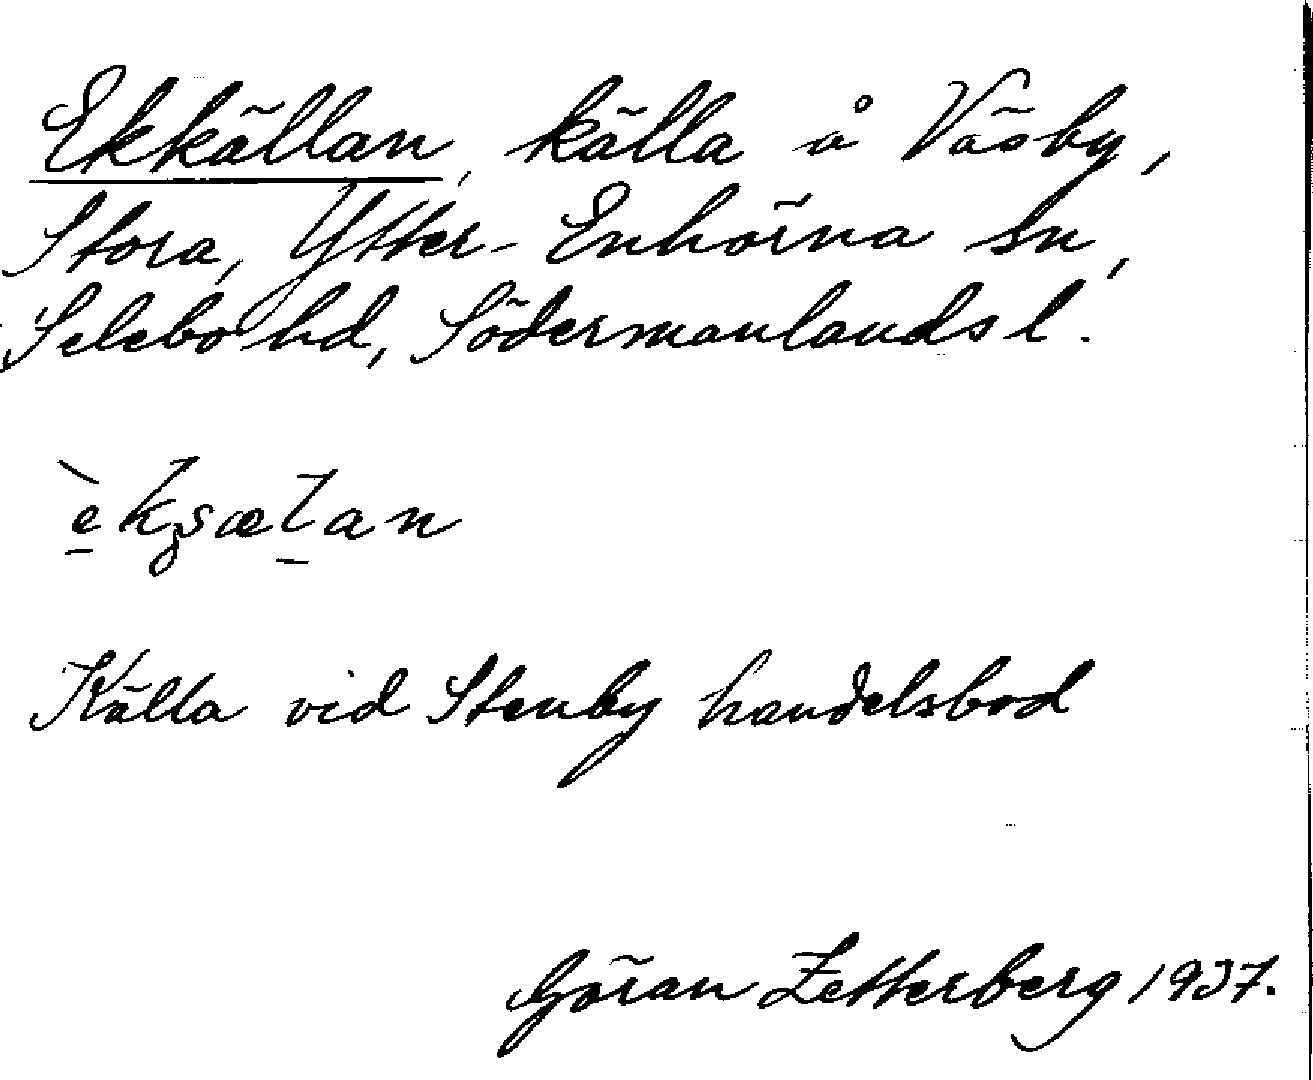 Ekkällan, källa å Väsby,
Stora, Ytter-Enhörna sn,
Selebo hd, Södermanlands l.
Källa vid Stenby handelsbod
Göran Zetterberg 1937.